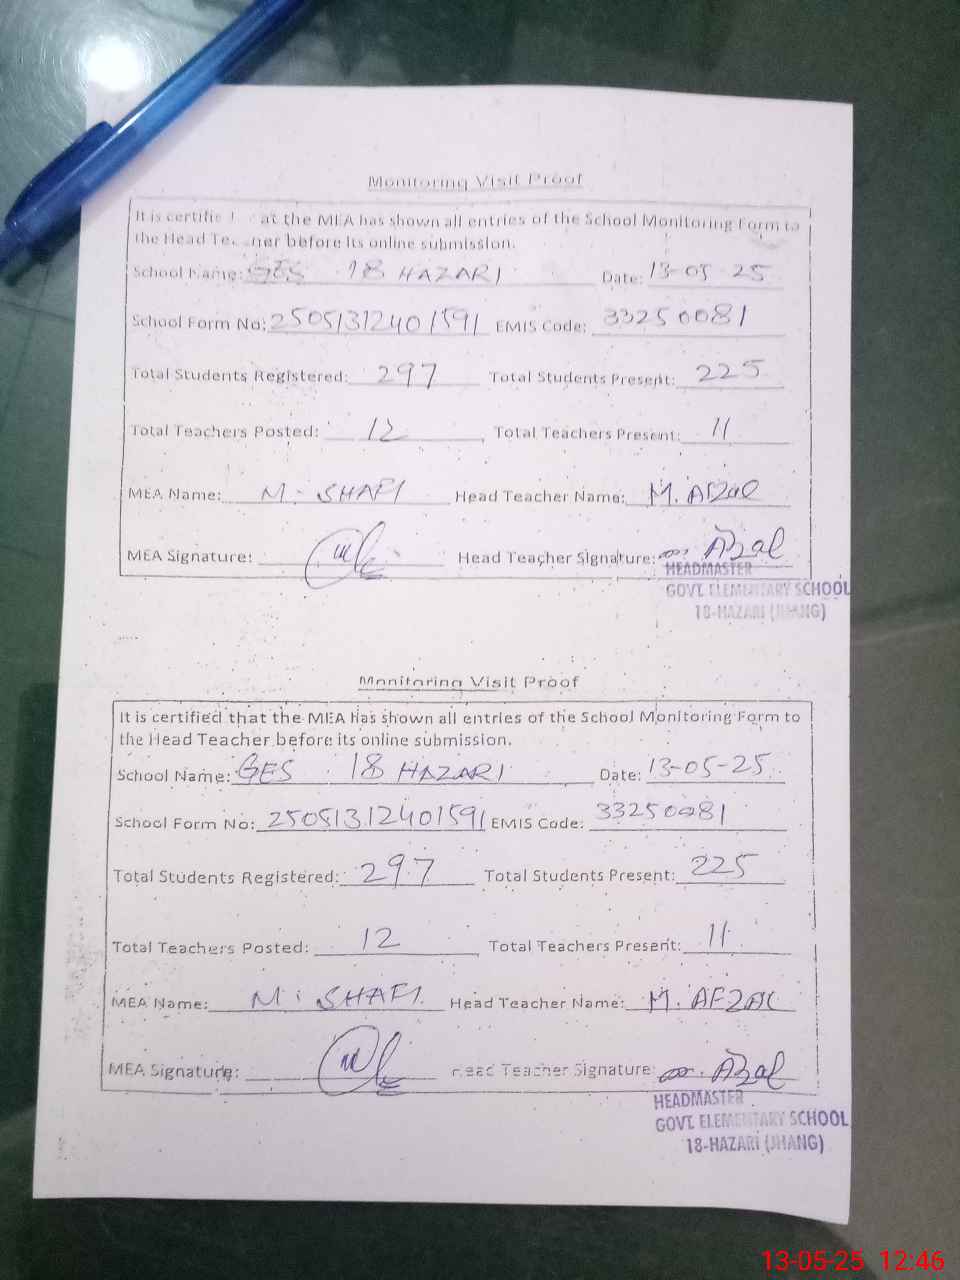 Monitoring Visit Proof
It is certifie at the MEA has shown all entries of the School Monitoring Form to
the Head Te ner before its online submission.
School Name: GES 18 HAZARI Date: 13-05-25
School Form No: 25051312401591 EMIS Code: 33250081
Total Students Registered: 297 Total Students Present: 225
Total Teachers Posted: 12 Total Teachers Present: 11
MEA Name: M. SHAFI Head Teacher Name: M. Afzal
MEA Signature: Head Teacher Signature: Afzal
HEADMASTER
GOVT. ELEMENTARY SCHOOL
18-HAZARI (JHANG)
Monitoring Visit Proof
It is certified that the MEA has shown all entries of the School Monitoring Form to
the Head Teacher before its online submission.
School Name: GES 18 HAZARI Date: 13-05-25
School Form No: 25051312401591 EMIS Code: 33250081
Total Students Registered: 297 Total Students Present: 225
Total Teachers Posted: 12 Total Teachers Present: 11
MEA Name: M. SHAFI Head Teacher Name: M. AFZAL
MEA Signature: Head Teacher Signature: Afzal
HEADMASTER
GOVT. ELEMENTARY SCHOOL
18-HAZARI (JHANG)
13-05-25 12:46